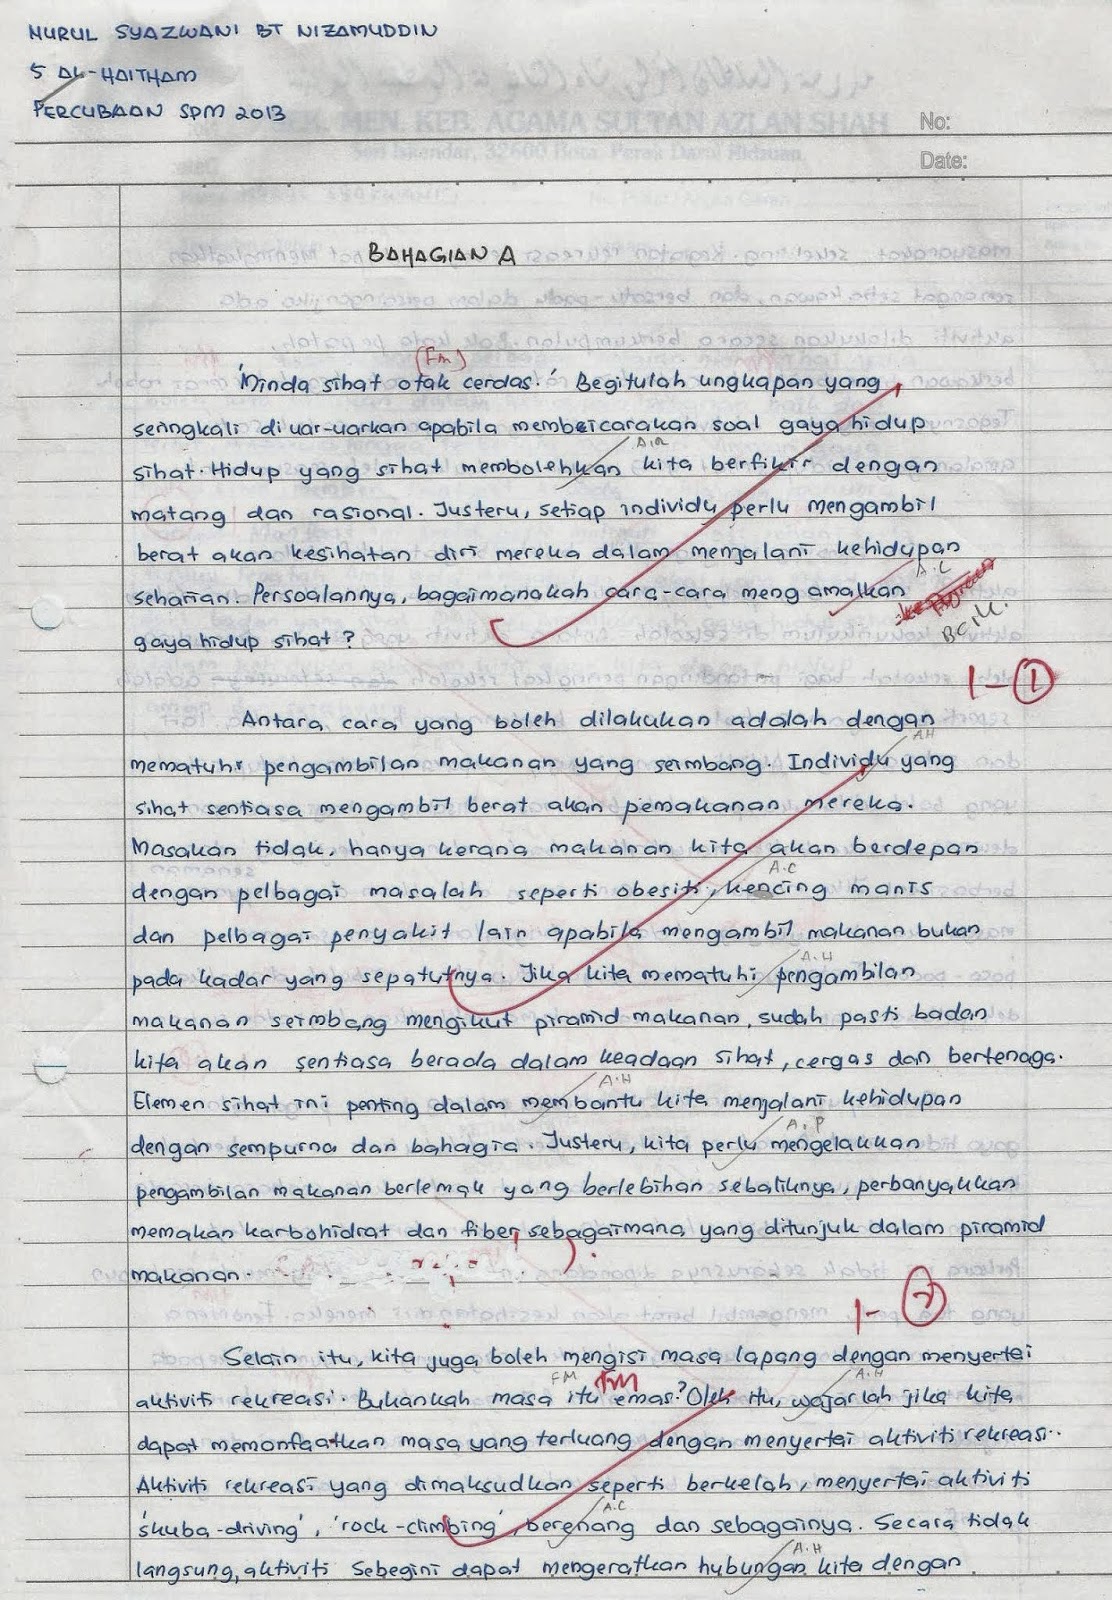 NURUL SYAZWANI BT NIZAMUDDIN
5 AL-HAITHAM
PERCUBAAN SPM 2013
SEK. MEN. KEB. AGAMA SULTAN AZLAN SHAH
Seri Iskandar, 32600 Bota, Perak Darul Ridzuan
No:
Date:
BAHAGIAN A
(Fm)
'Minda sihat otak cerdas.' Begitulah ungkapan yang
seringkali diuar-uarkan apabila membicarakan soal gaya hidup
A.R
sihat. Hidup yang sihat membolehkan kita berfikir dengan
matang dan rasional. Justeru, setiap individu perlu mengambil
berat akan kesihatan diri mereka dalam menjalani kehidupan
A.C
seharian. Persoalannya, bagaimanakah cara-cara mengamalkan
BCM.
gaya hidup sihat?
1-1
Antara cara yang boleh dilakukan adalah dengan
AH
mematuhi pengambilan makanan yang seimbang. Individu yang
sihat sentiasa mengambil berat akan pemakanan mereka.
Masakan tidak, hanya kerana makanan kita akan berdepan
A.C
dengan pelbagai masalah seperti obesiti, kencing manis
dan pelbagai penyakit lain apabila mengambil makanan bukan
A.H
pada kadar yang sepatutnya. Jika kita mematuhi pengambilan
makanan seimbang mengikut piramid makanan, sudah pasti badan
kita akan sentiasa berada dalam keadaan sihat, cergas dan bertenaga.
A.H
Elemen sihat ini penting dalam membantu kita menjalani kehidupan
A.P
dengan sempurna dan bahagia. Justeru, kita perlu mengelakkan
pengambilan makanan berlemak yang berlebihan sebaliknya, perbanyakkan
memakan karbohidrat dan fiber sebagaimana yang ditunjuk dalam piramid
makanan.
Selain itu, kita juga boleh mengisi masa lapang dengan menyertai
FM FM A.H
aktiviti rekreasi. Bukankah masa itu emas? Oleh itu, wajarlah jika kita
dapat memanfaatkan masa yang terluang dengan menyertai aktiviti rekreasi.
Aktiviti rekreasi yang dimaksudkan seperti berkelah, menyertai aktiviti
A.C
'skuba-driving', 'rock-climbing', berenang dan sebagainya. Secara tidak
A.H
langsung, aktiviti sebegini dapat mengeratkan hubungan kita dengan